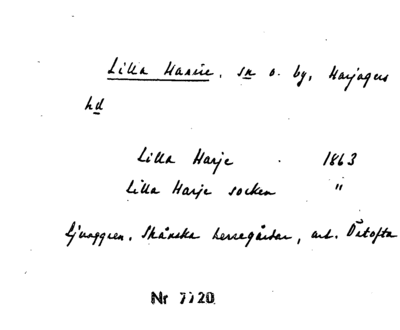 Lilla Harrie, sn o. by, Harjagers
hd
Lilla Harje . 1863
Lilla Harje socken "
Ljunggren, Skånska herregårdar, art. Örtofta
Nr 7720